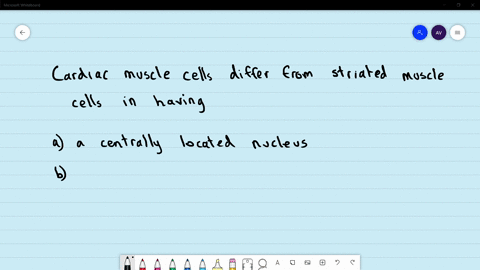 Cardiac muscle cells differ from striated muscle
cells in having
a) a centrally located nucleus
b)